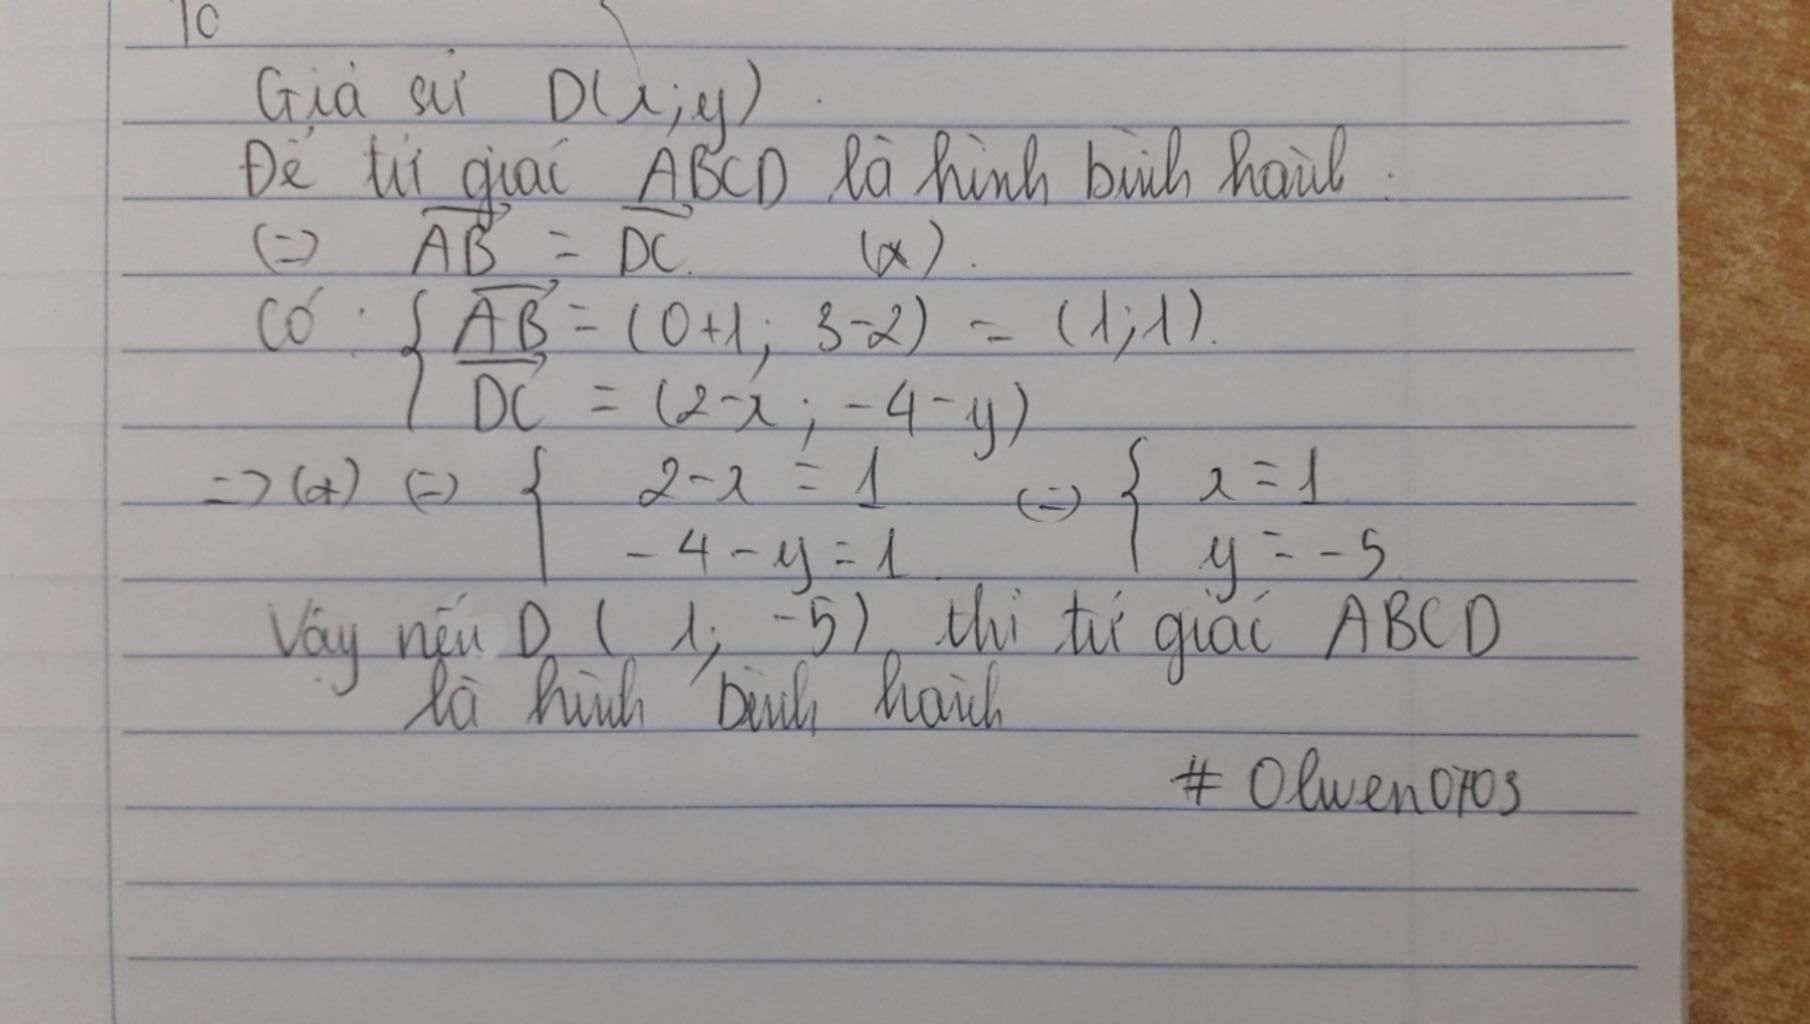 10
Giả sử D(x;y).
Để tứ giác ABCD là hình bình hành.
(=) AB = DC. (*).
Có: { AB = (0+1; 3-2) = (1;1).
DC = (2-x; -4-y)
=> (*) (=) { 2-x = 1 (=) { x = 1
-4-y = 1 y = -5
Vậy nếu D (1; -5) thì tứ giác ABCD
là hình bình hành
# Olwen0703